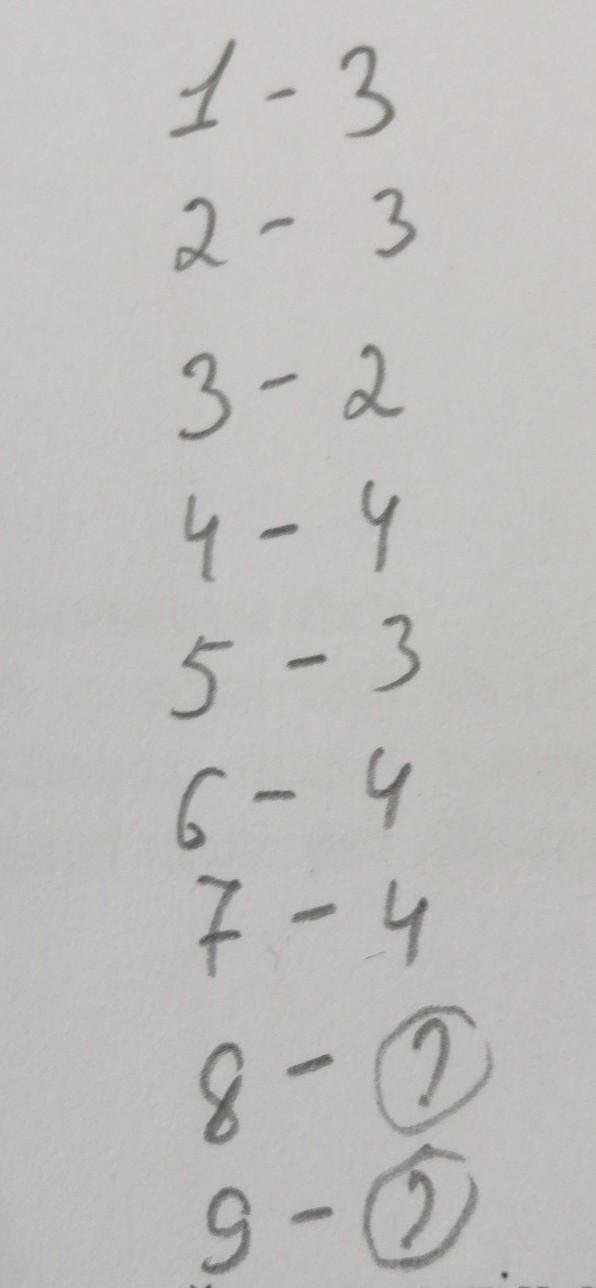 1 - 3
2 - 3
3 - 2
4 - 4
5 - 3
6 - 4
7 - 4
8 - ?
9 - ?